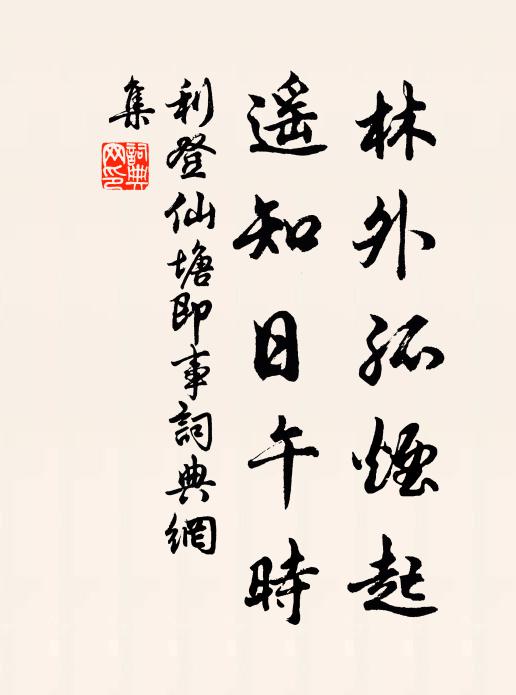 林外孤煙起
遥知日午時
利登仙塘即事詞典網
集
詞典
网印